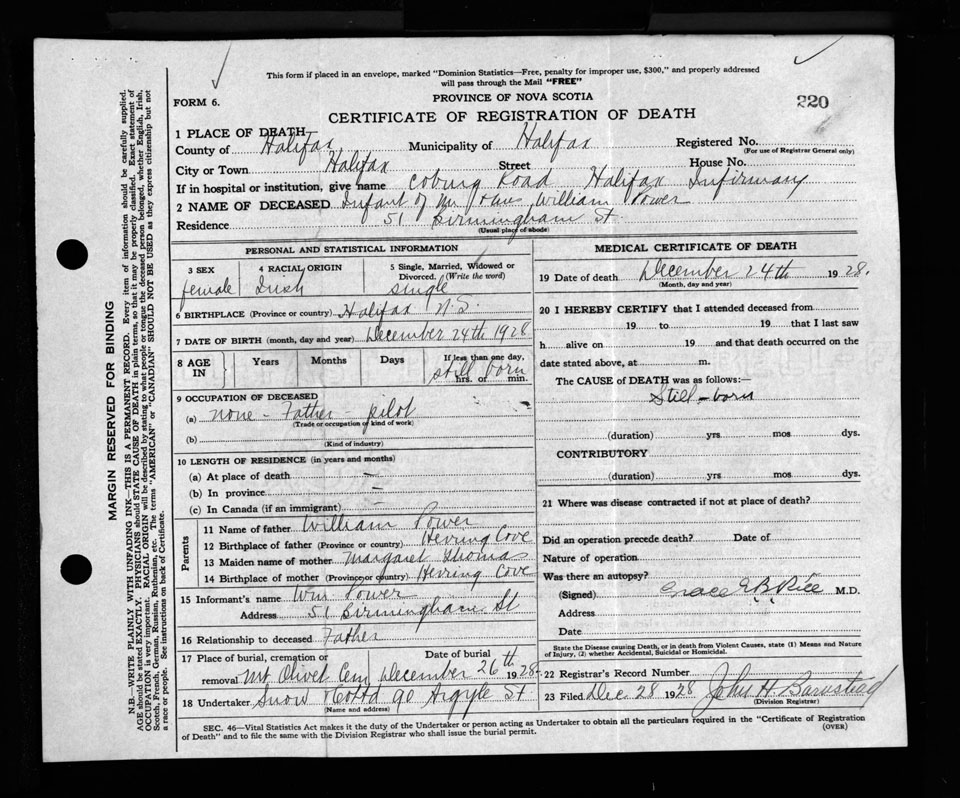 This form if placed in an envelope, marked "Dominion Statistics—Free, penalty for improper use, $300," and properly addressed
will pass through the Mail "FREE"
FORM 6.
PROVINCE OF NOVA SCOTIA
220
CERTIFICATE OF REGISTRATION OF DEATH
1 PLACE OF DEATH
County of Halifax Municipality of Halifax Registered No.
(For use of Registrar General only)
City or Town Halifax Street House No.
If in hospital or institution, give name Coburg Road Halifax Infirmary
2 NAME OF DECEASED Infant of Mr William Power
Residence 51 Birmingham St
(Usual place of abode)
PERSONAL AND STATISTICAL INFORMATION
3 SEX
female
4 RACIAL ORIGIN
Irish
5 Single, Married, Widowed or
Divorced. (Write the word)
single
6 BIRTHPLACE (Province or country) Halifax N.S.
7 DATE OF BIRTH (month, day and year) December 24th 1928
8 AGE
IN
Years Months Days
If less than one day,
still born
hrs. or min.
9 OCCUPATION OF DECEASED
(a) none - Father - pilot
(Trade or occupation or kind of work)
(b)
(Kind of industry)
10 LENGTH OF RESIDENCE (in years and months)
(a) At place of death —
(b) In province —
(c) In Canada (if an immigrant) —
Parents
11 Name of father William Power
12 Birthplace of father (Province or country) Herring Cove
13 Maiden name of mother Margaret Thomas
14 Birthplace of mother (Province or country) Herring Cove
15 Informant's name Wm Power
Address 51 Birmingham St
16 Relationship to deceased Father
17 Place of burial, cremation or
removal Mt Olivet Cem
Date of burial
December 26th 1928
18 Undertaker Snow & Co Ltd 90 Argyle St
Name and address
MEDICAL CERTIFICATE OF DEATH
19 Date of death December 24th 1928.
(Month, day and year)
20 I HEREBY CERTIFY that I attended deceased from
19 to 19 that I last saw
h alive on 19 and that death occurred on the
date stated above, at m.
The CAUSE of DEATH was as follows:—
Still-born
(duration) yrs mos dys.
CONTRIBUTORY
(duration) yrs mos dys.
21 Where was disease contracted if not at place of death?
Did an operation precede death? Date of
Nature of operation
Was there an autopsy?
(Signed) Grace E B Rice M.D.
Address
Date
State the Disease causing Death, or in death from Violent Causes, state (1) Means and Nature
of Injury, (2) whether Accidental, Suicidal or Homicidal.
22 Registrar's Record Number
23 Filed Dec 28 1928 John H. Barnstead
(Division Registrar)
SEC. 46—Vital Statistics Act makes it the duty of the Undertaker or person acting as Undertaker to obtain all the particulars required in the "Certificate of Registration
of Death" and to file the same with the Division Registrar who shall issue the burial permit.
(OVER)
MARGIN RESERVED FOR BINDING
N.B.—WRITE PLAINLY WITH UNFADING INK—THIS IS A PERMANENT RECORD. Every item of information should be carefully supplied.
AGE should be stated EXACTLY. PHYSICIANS should STATE CAUSE OF DEATH in plain terms, so that it may be properly classified. Exact statement of
OCCUPATION is very important. RACIAL ORIGIN will be described by stating to what people or tongue the deceased person belonged, whether English, Irish,
Scotch, French, German, Russian, Ruthenian, etc. The terms "AMERICAN" or "CANADIAN" SHOULD NOT BE USED as they express citizenship but not
a race or people. See instructions on back of Certificate.